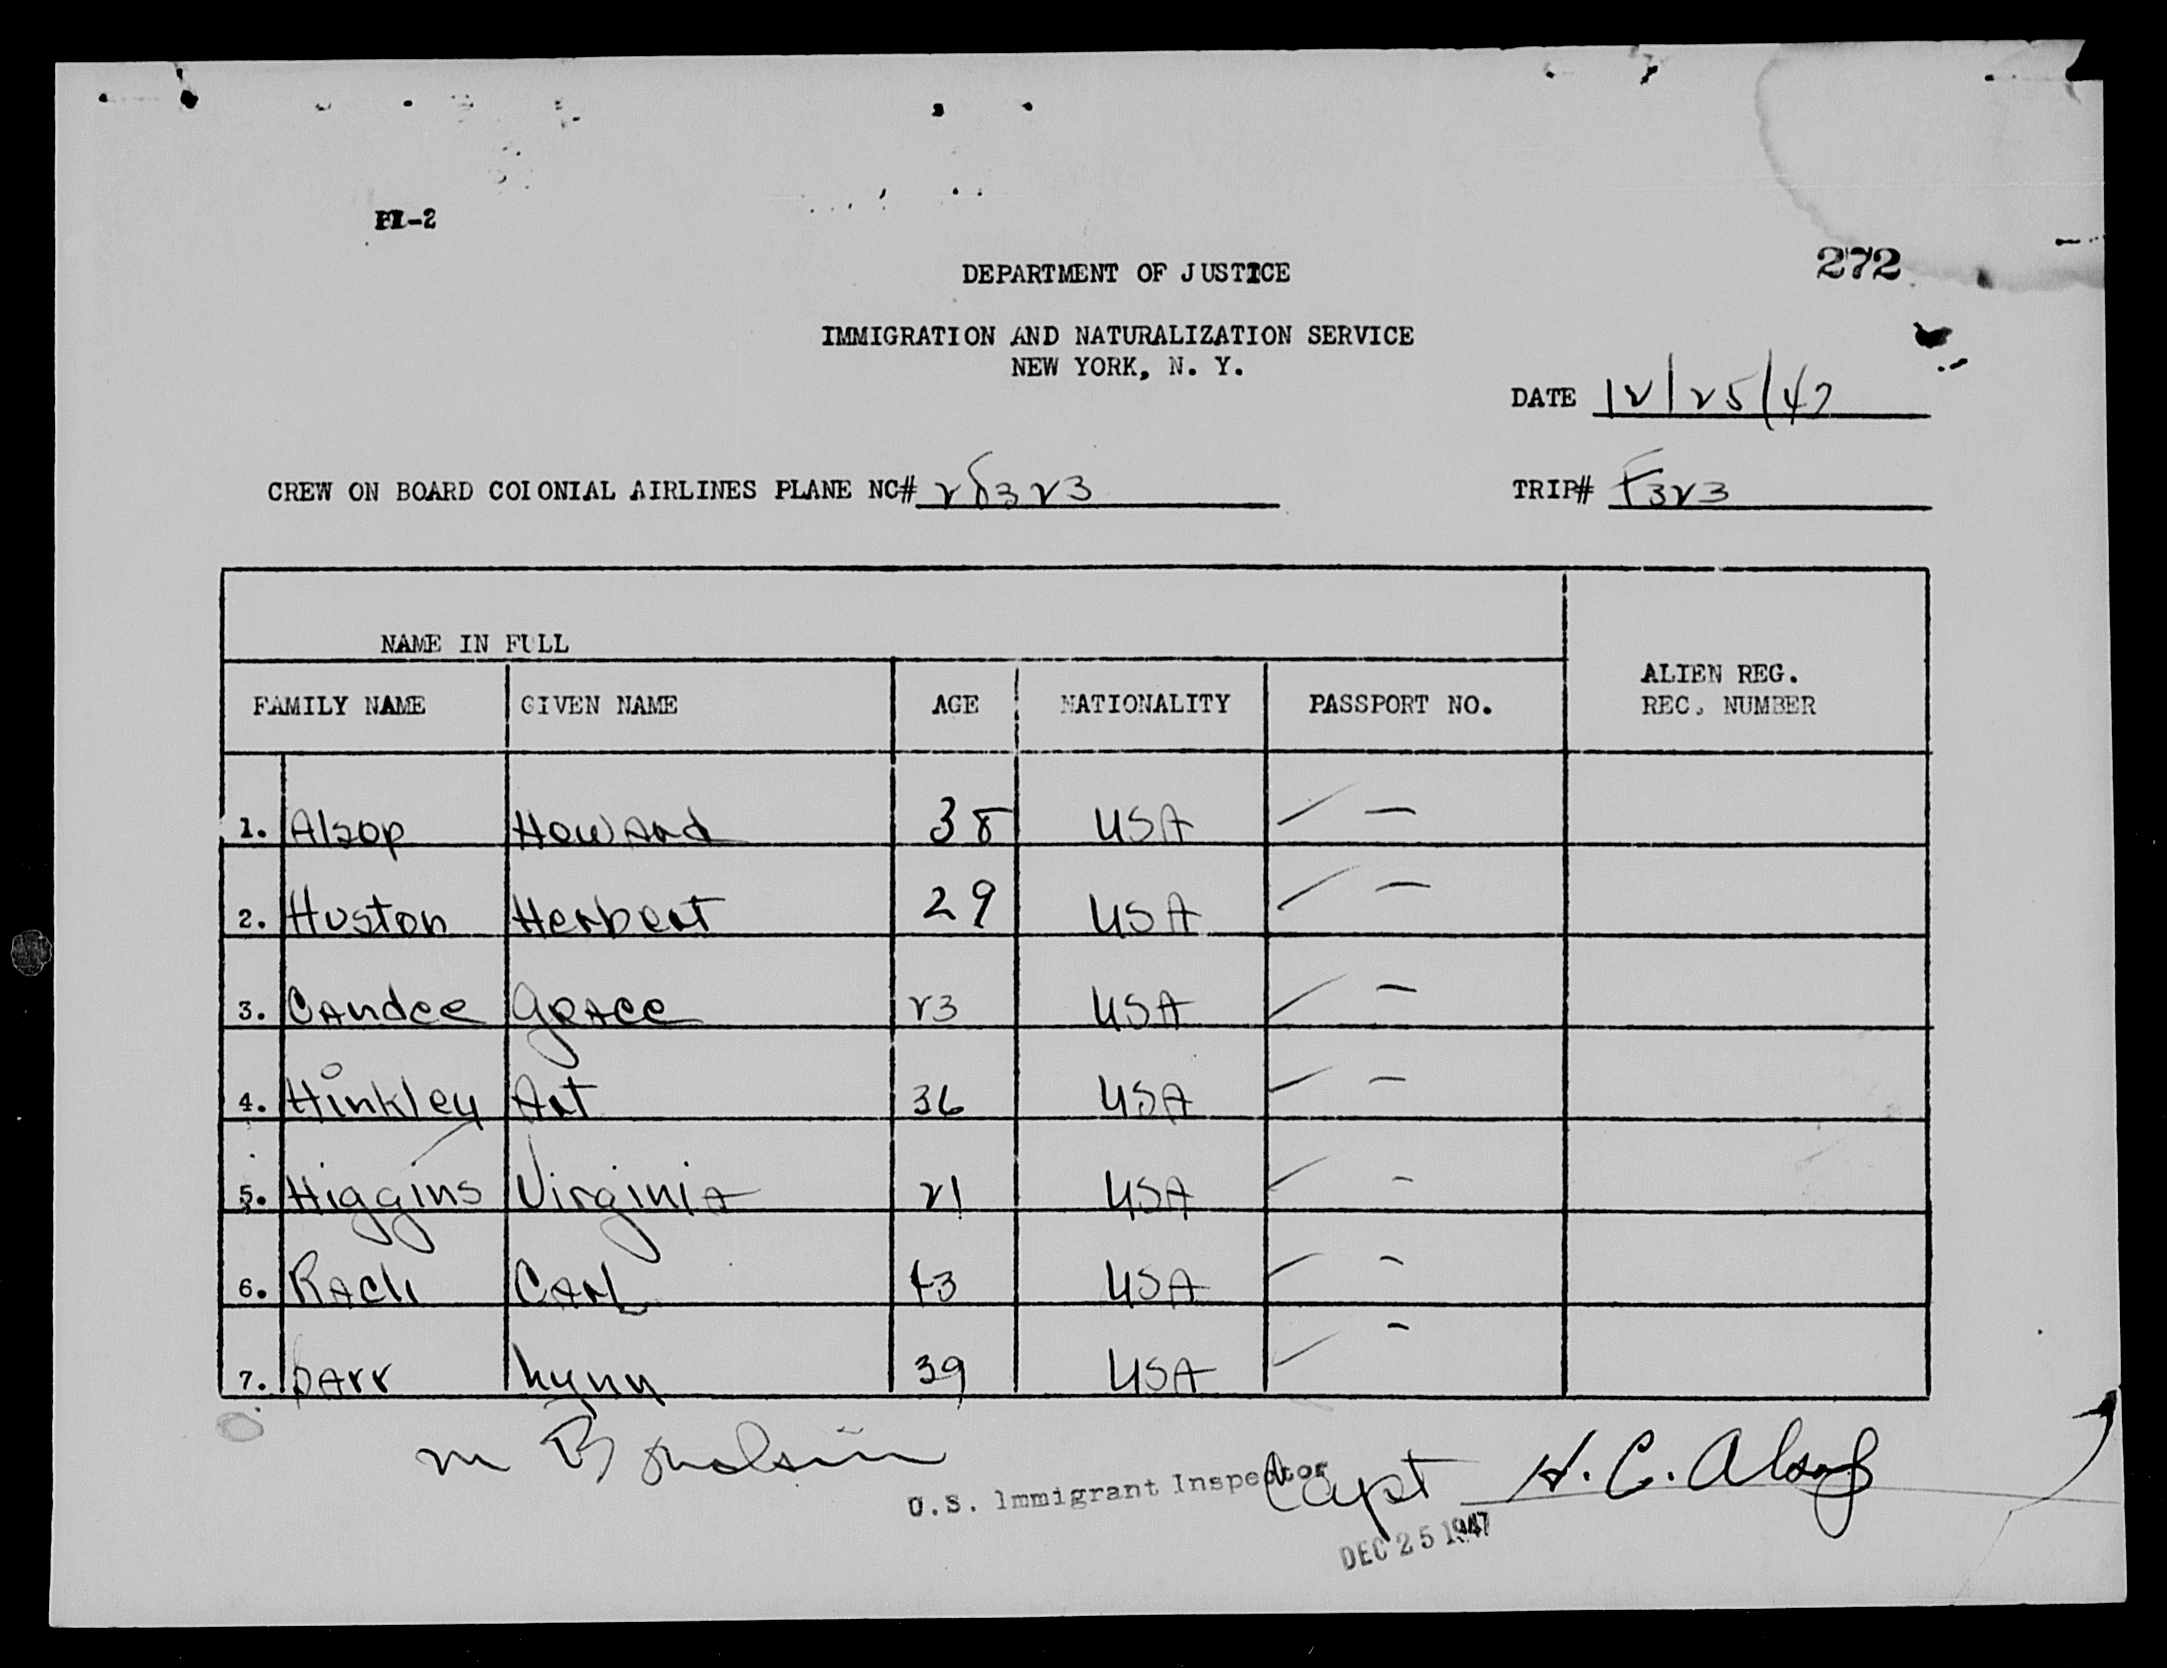 PI-2
DEPARTMENT OF JUSTICE
272
IMMIGRATION AND NATURALIZATION SERVICE
NEW YORK, N. Y.
DATE 12/25/47
CREW ON BOARD COLONIAL AIRLINES PLANE NC# 28323 TRIP# F323
NAME IN FULL
ALIEN REG.
FAMILY NAME GIVEN NAME AGE NATIONALITY PASSPORT NO. REC. NUMBER
1. Alsop Howard 38 USA —
2. Huston Herbert 29 USA —
3. Candee Grace 23 USA —
4. Hinkley Art 36 USA —
5. Higgins Virginia 21 USA -
6. Rach Carl 43 USA -
7. Darr Lynn 39 USA -
M B
U.S. Immigrant Inspector
Capt H. C. Alsop
DEC 25 1947